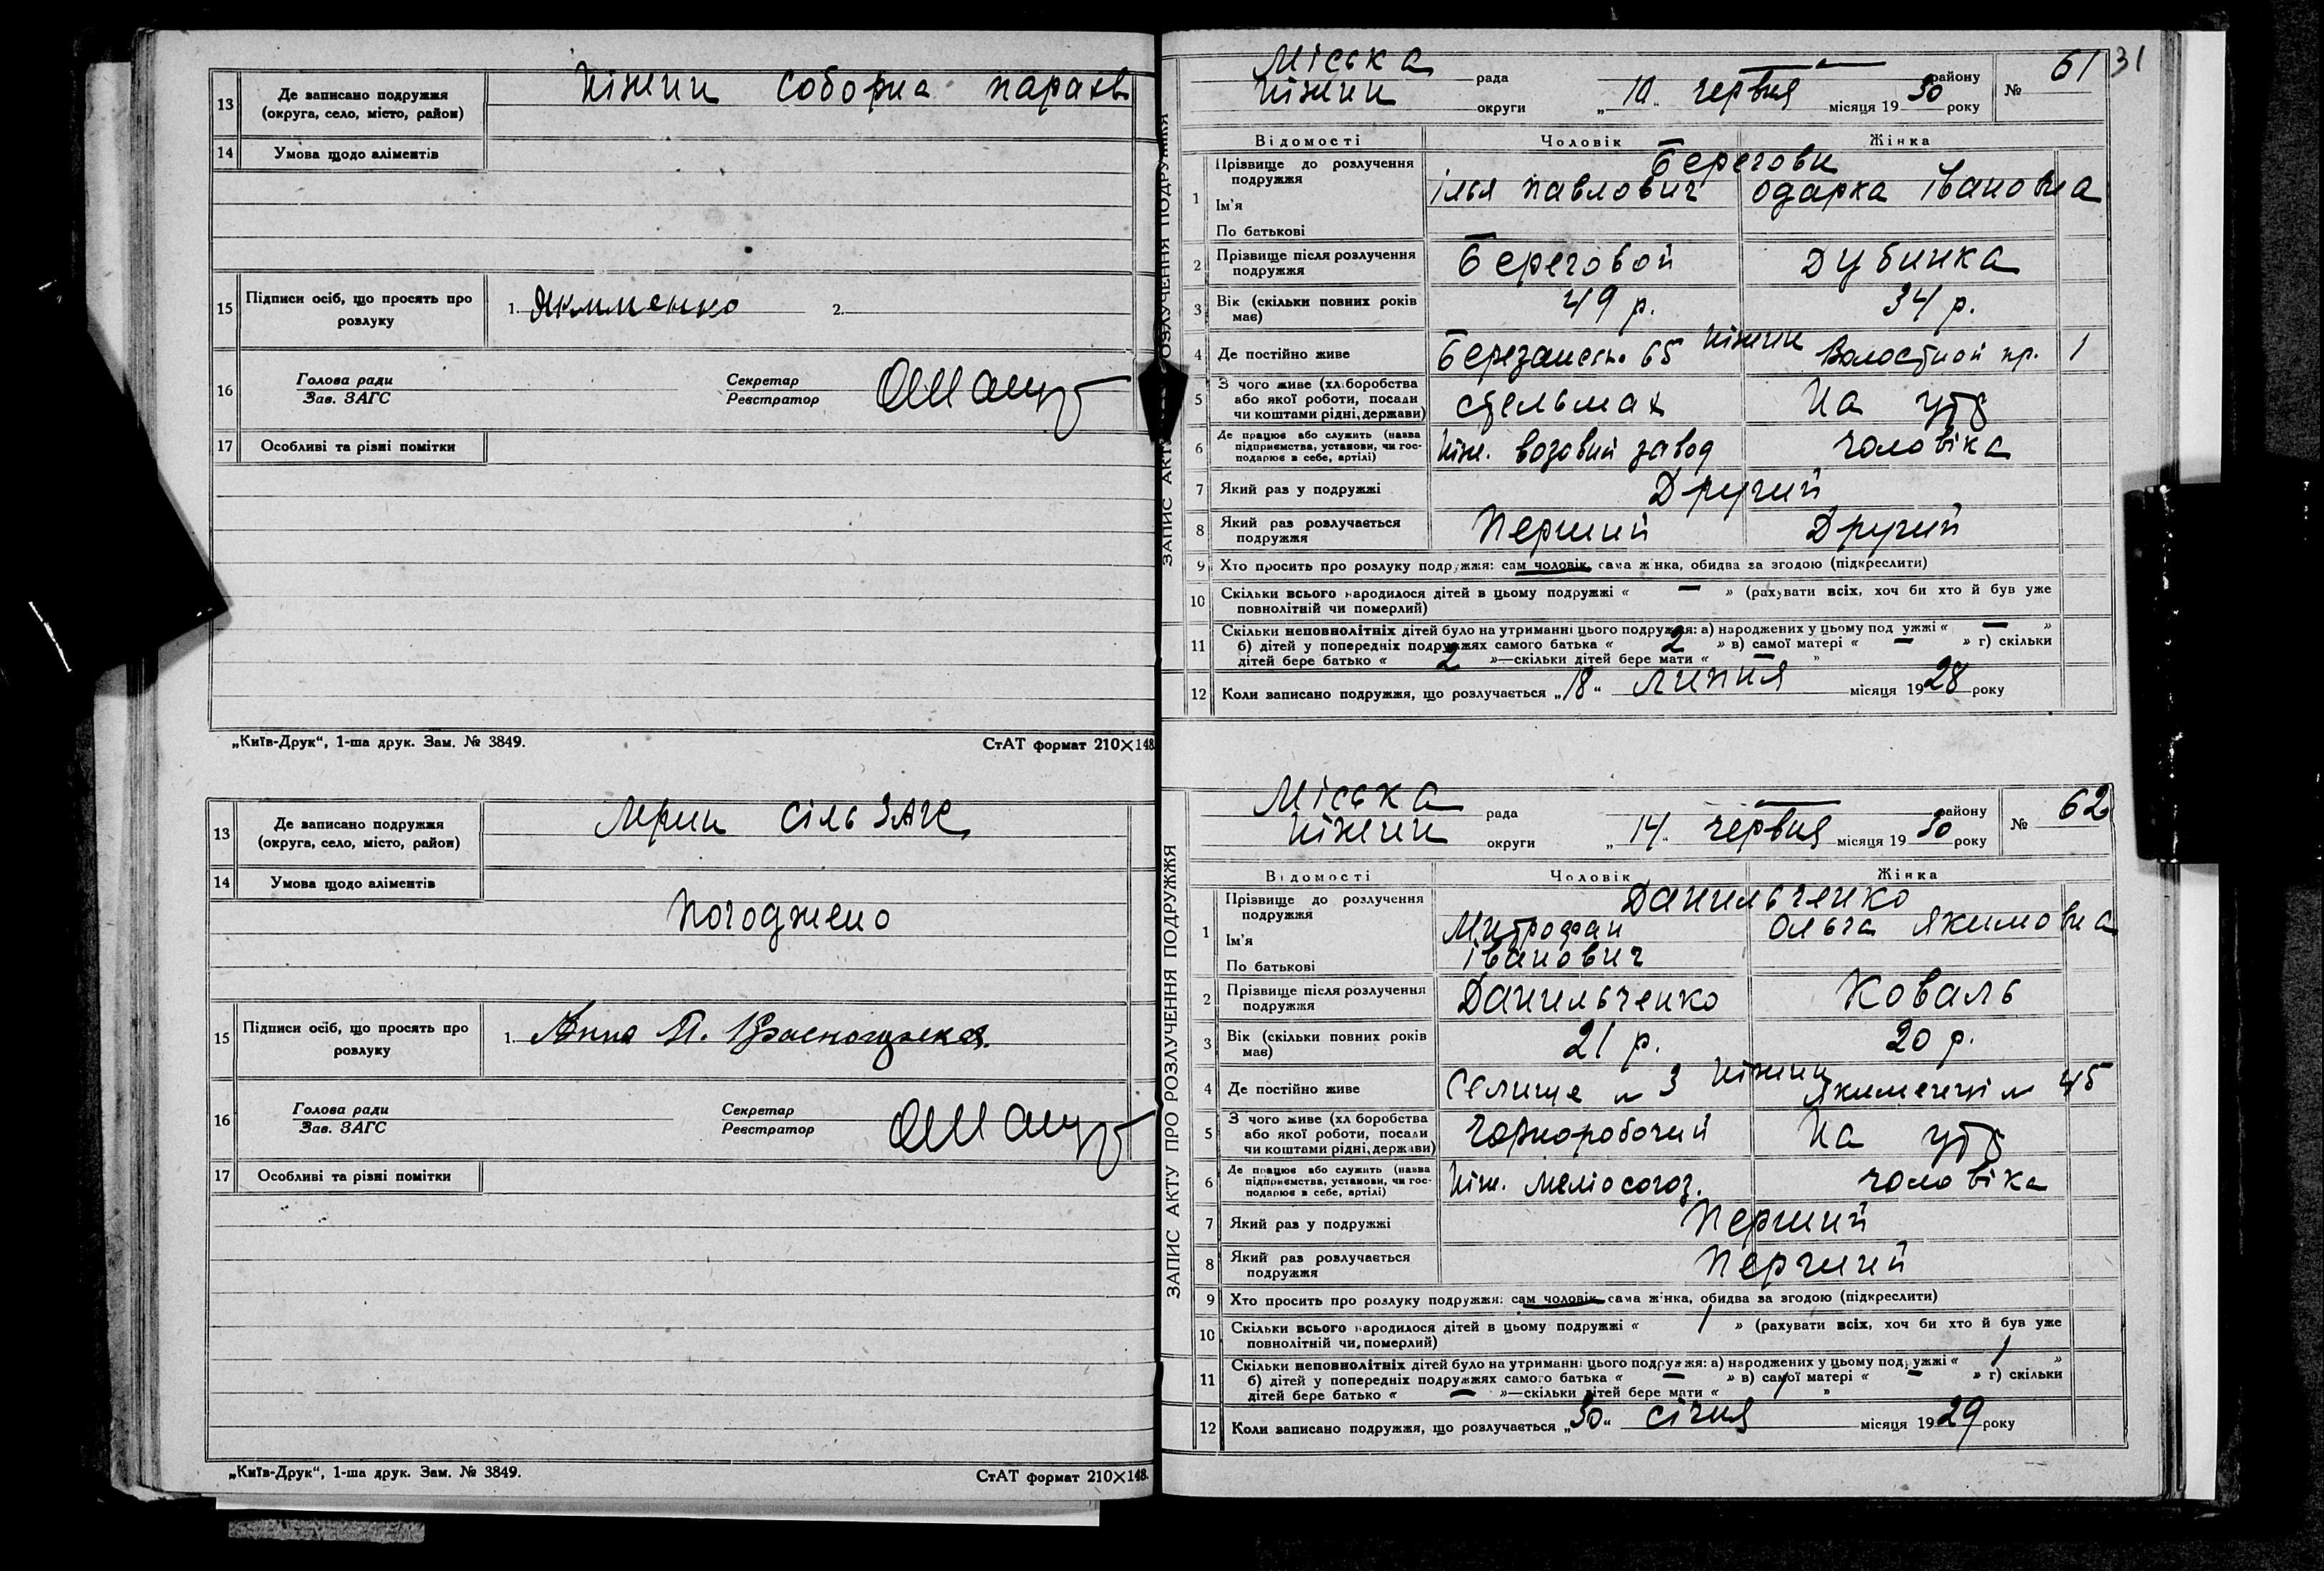 13 Де записано подружжя (округа, село, місто, район) Ніжин соборна парахв
14 Умова щодо аліментів
15 Підписи осіб, що просять про розлуку 1. Якименко 2.
16 Голова ради Зав. ЗАГС Секретар Реєстратор
17 Особливі та різні помітки
„Київ-Друк“, 1-ша друк. Зам. № 3849. СтАТ формат 210×148
13 Де записано подружжя (округа, село, місто, район) Мрин сіль ЗАГС
14 Умова щодо аліментів
Погоджено
15 Підписи осіб, що просять про розлуку 1. Анна П.
16 Голова ради Зав. ЗАГС Секретар Реєстратор
17 Особливі та різні помітки
„Київ-Друк“, 1-ша друк. Зам. № 3849. СтАТ формат 210×148.
ЗАПИС АКТУ ПРО РОЗЛУЧЕННЯ ПОДРУЖЖЯ
31
Міська рада — району № 61
Ніжин округи „10„ червня місяця 1930 року
Відомості Чоловік Жінка
1 Прізвище до розлучення подружжя Берегови
Ім'я Ілья Павлович Одарка Івановна
По батькові
2 Прізвище після розлучення подружжя Береговой Дубинка
3 Вік (скільки повних років має) 49 р. 34 р.
4 Де постійно живе Березанськ. 65 Ніжин Волостной пр. 1
5 З чого живе (хліборобства або якої роботи, посади чи коштами рідні, держави) стельмах На утр
6 Де працює або служить (назва підприємства, установи, чи господарює в себе, артілі) Ніж. возовий завод чоловіка
7 Який раз у подружжі Другий
8 Який раз розлучається подружжя Перший Другий
9 Хто просить про розлуку подружжя: сам чоловік, сама жінка, обидва за згодою (підкреслити)
10 Скільки всього народилося дітей в цьому подружжі « — » (рахувати всіх, хоч би хто й був уже
повнолітній чи померлий)
11 Скільки неповнолітніх дітей було на утриманні цього подружжя: а) народжених у цьому подружжі « — »
б) дітей у попередніх подружжях самого батька « 2 » в) самої матері « — » г) скільки
дітей бере батько « 2 »—скільки дітей бере мати « — »
12 Коли записано подружжя, що розлучається „18„ липня місяця 1928 року
ЗАПИС АКТУ ПРО РОЗЛУЧЕННЯ ПОДРУЖЖЯ
Міська рада — району № 62
Ніжин округи „14„ червня місяця 1930 року
Відомості Чоловік Жінка
1 Прізвище до розлучення подружжя Данильченко
Ім'я Митрофан Ольга Якимовна
По батькові Іванович
2 Прізвище після розлучення подружжя Данильченко Коваль
3 Вік (скільки повних років має) 21 р. 20 р.
4 Де постійно живе Селище № 3 Ніжин 45
5 З чого живе (хліборобства або якої роботи, посади чи коштами рідні, держави) Чорноробочий На утр
6 Де працює або служить (назва підприємства, установи, чи господарює в себе, артілі) Ніж. меліосоюз. чоловіка
7 Який раз у подружжі Перший
8 Який раз розлучається подружжя Перший
9 Хто просить про розлуку подружжя: сам чоловік, сама жінка, обидва за згодою (підкреслити)
10 Скільки всього народилося дітей в цьому подружжі « 1 » (рахувати всіх, хоч би хто й був уже
повнолітній чи померлий)
11 Скільки неповнолітніх дітей було на утриманні цього подружжя: а) народжених у цьому подружжі « 1 »
б) дітей у попередніх подружжях самого батька « — » в) самої матері « — » г) скільки
дітей бере батько « — »—скільки дітей бере мати « 1 »
12 Коли записано подружжя, що розлучається „30„ січня місяця 1929 року